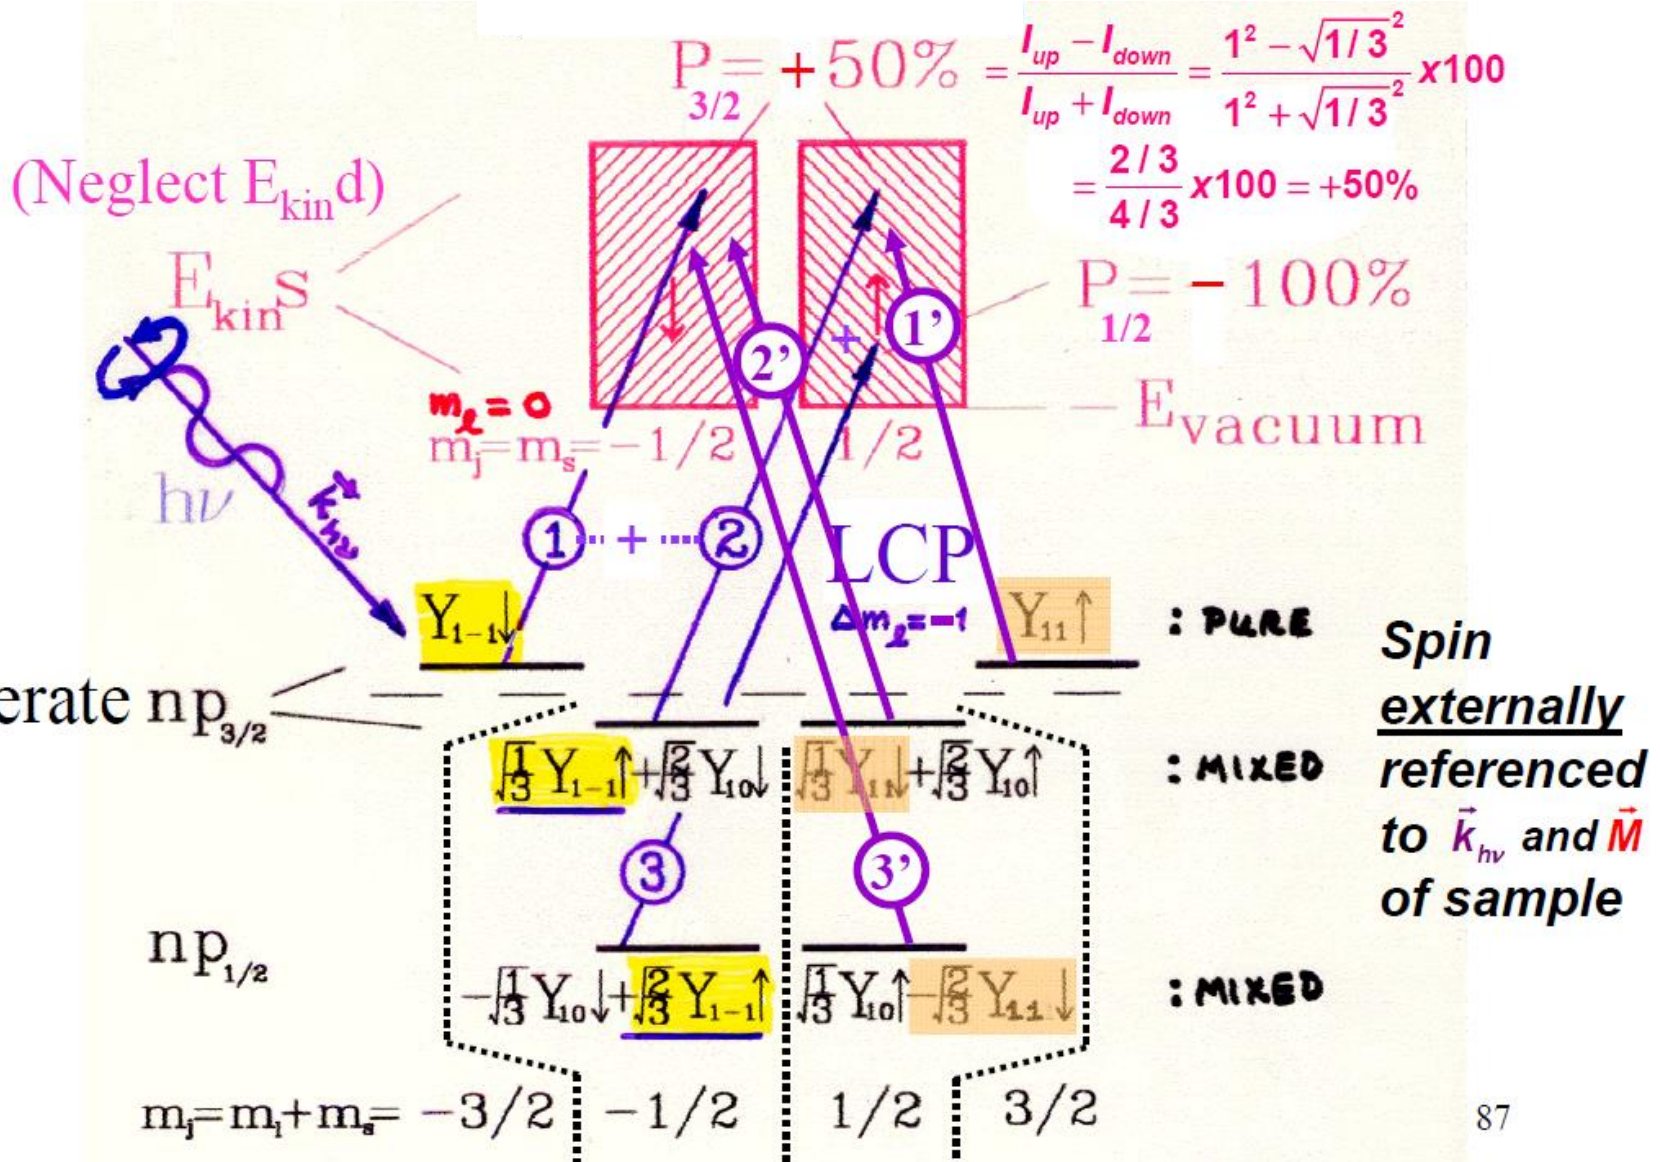 P₃/₂ = +50% = (I_up − I_down) / (I_up + I_down) = (1² − √1/3²) / (1² + √1/3²) x100
= (2/3) / (4/3) x100 = +50%
(Neglect E_kin d)
E_kin s
P₁/₂ = −100%
↓
+ ↑
1'
2'
m_ℓ = 0
m_j=m_s=−1/2
1/2
E_vacuum
hν
k⃗_hν
1 + 2
LCP
Δm_ℓ=-1
Y₁₋₁↓
Y₁₁↑
: PURE
erate np₃/₂
√1/3 Y₁₋₁↑+√2/3 Y₁₀↓
√1/3 Y₁₁↓+√2/3 Y₁₀↑
: MIXED
3
3'
np₁/₂
−√1/3 Y₁₀↓+√2/3 Y₁₋₁↑
√1/3 Y₁₀↑−√2/3 Y₁₁↓
: MIXED
m_j=m_l+m_s= −3/2 −1/2 1/2 3/2
Spin
externally
referenced
to k⃗_hν and M⃗
of sample
87